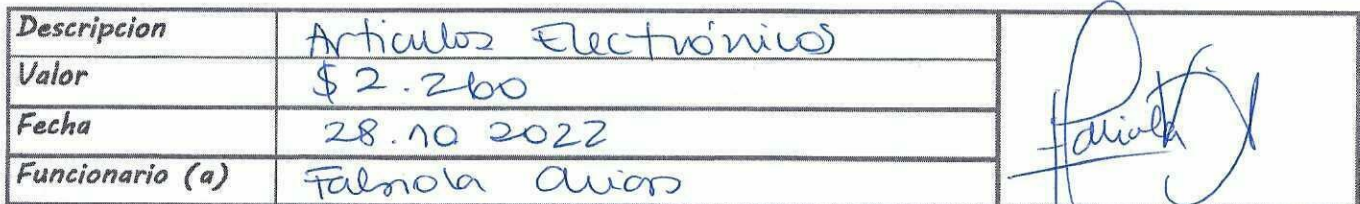 Descripcion Articulos Electrónicos
Valor $ 2.260
Fecha 28.10 2022
Funcionario (a) Fabiola Arias